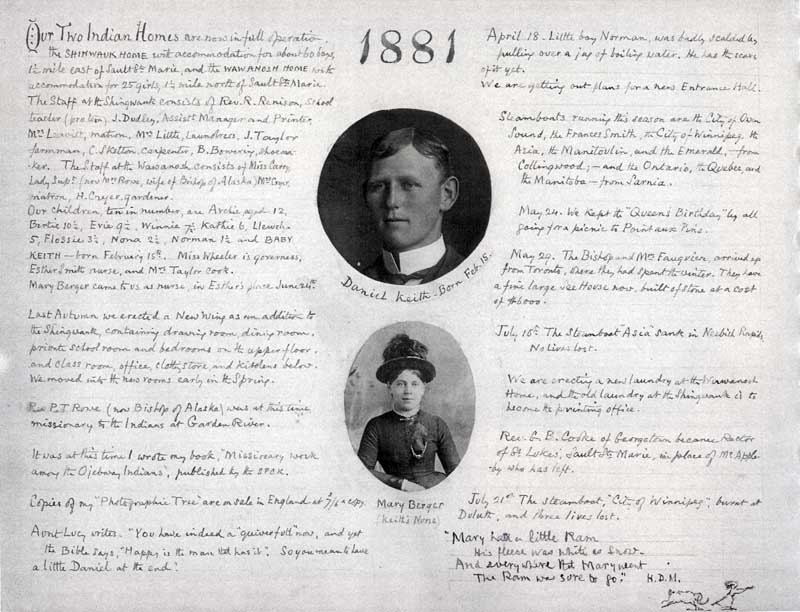 Our Two Indian Homes are now in full operation.
the SHINWAUK HOME with accommodation for about 60 boys,
1½ mile east of Sault Ste Marie, and the WAWANOSH HOME with
accommodation for 25 girls, 1½ mile north of Sault Ste Marie.
The Staff at the Shingwauk consists of Rev. R. Renison, School
teacher (pro tem) J. Dudley, Assistt Manager and Printer,
matron, Mrs Little, Laundress, J. Taylor
farmman, C. Skelton. Carpenter, B. Bowering, shoema-
-ker. The Staff at the Wawanosh consists of Miss Carry,
Lady Supt. (now Mrs Rowe, wife of Bishop of Alaska) Mrs Cryer,
matron, H. Cryer, gardener.
Our children, ten in number, are Archie, aged 12,
Bertie 10½, Evie 9½, Winnie Kathie 6, Llewel-
5, Flossie 3½, Nona 2½, Norman 1½ and BABY
KEITH — born February 15th. Miss Wheeler is governess,
Esther Smith nurse, and Mrs Taylor cook.
Mary Berger came to us as nurse, in Esther's place June 24th.
Last Autumn we erected a New Wing as an addition to
the Shingwauk, containing drawing room, dining room,
private school room and bedrooms on the upper floor,
and class room, office, clothg store, and kitchens below.
We moved into the new rooms early in the Spring.
Rev P.T Rowe (now Bishop of Alaska) was at this time
missionary to the Indians at Garden River.
It was at this time I wrote my book, "Missionary work
among the Ojebway Indians", published by the SPCK.
Copies of my "Photographic Tree" are on sale in England at 2/6 a copy.
Aunt Lucy writes. "You have indeed a "quiver full" now, and yet
the Bible says, "Happy is the man that has it". So you mean to have
a little Daniel at the end!
1881
Daniel Keith - Born Feb. 15.
Mary Berger
(Keith's Nurse)
April 18 - Little boy Norman, was badly scalded by
pulling over a jug of boiling water. He has the scars
of it yet.
We are getting out plans for a new Entrance Hall.
Steamboats running this season are the City of Owen
Sound, the Frances Smith, the City of Winnipeg, the
Asia, the Manitoulin, and the Emerald, - from
Collingwood; - and the Ontario, the Quebec, and
the Manitoba - from Sarnia.
May 24. We kept the "Queen's Birthday" by all
going for a picnic to Point aux Pins.
May 29. The Bishop and Mrs Fauquier, arrived up
from Toronto, where they had spent the winter. They have
a fine large See House now, built of stone at a cost
of
July 16th The Steamboat "Asia" sank in Neebish Rapids,
No lives lost.
We are erecting a new laundry at the Wawanosh
Home, and the old laundry at the Shingwauk is to
become the printing office.
Rev. G. B. Cooke of Georgetown became Rector
of St Lukes, Sault Ste Marie, in place of Mr Apple-
by who has left.
July 21st The steamboat, "City of Winnipeg", burnt at
Duluth, and three lives lost.
"Mary had a little Ram
His fleece was white as snow.
And everywhere that Mary went
The Ram was sure to go." H.D.M.